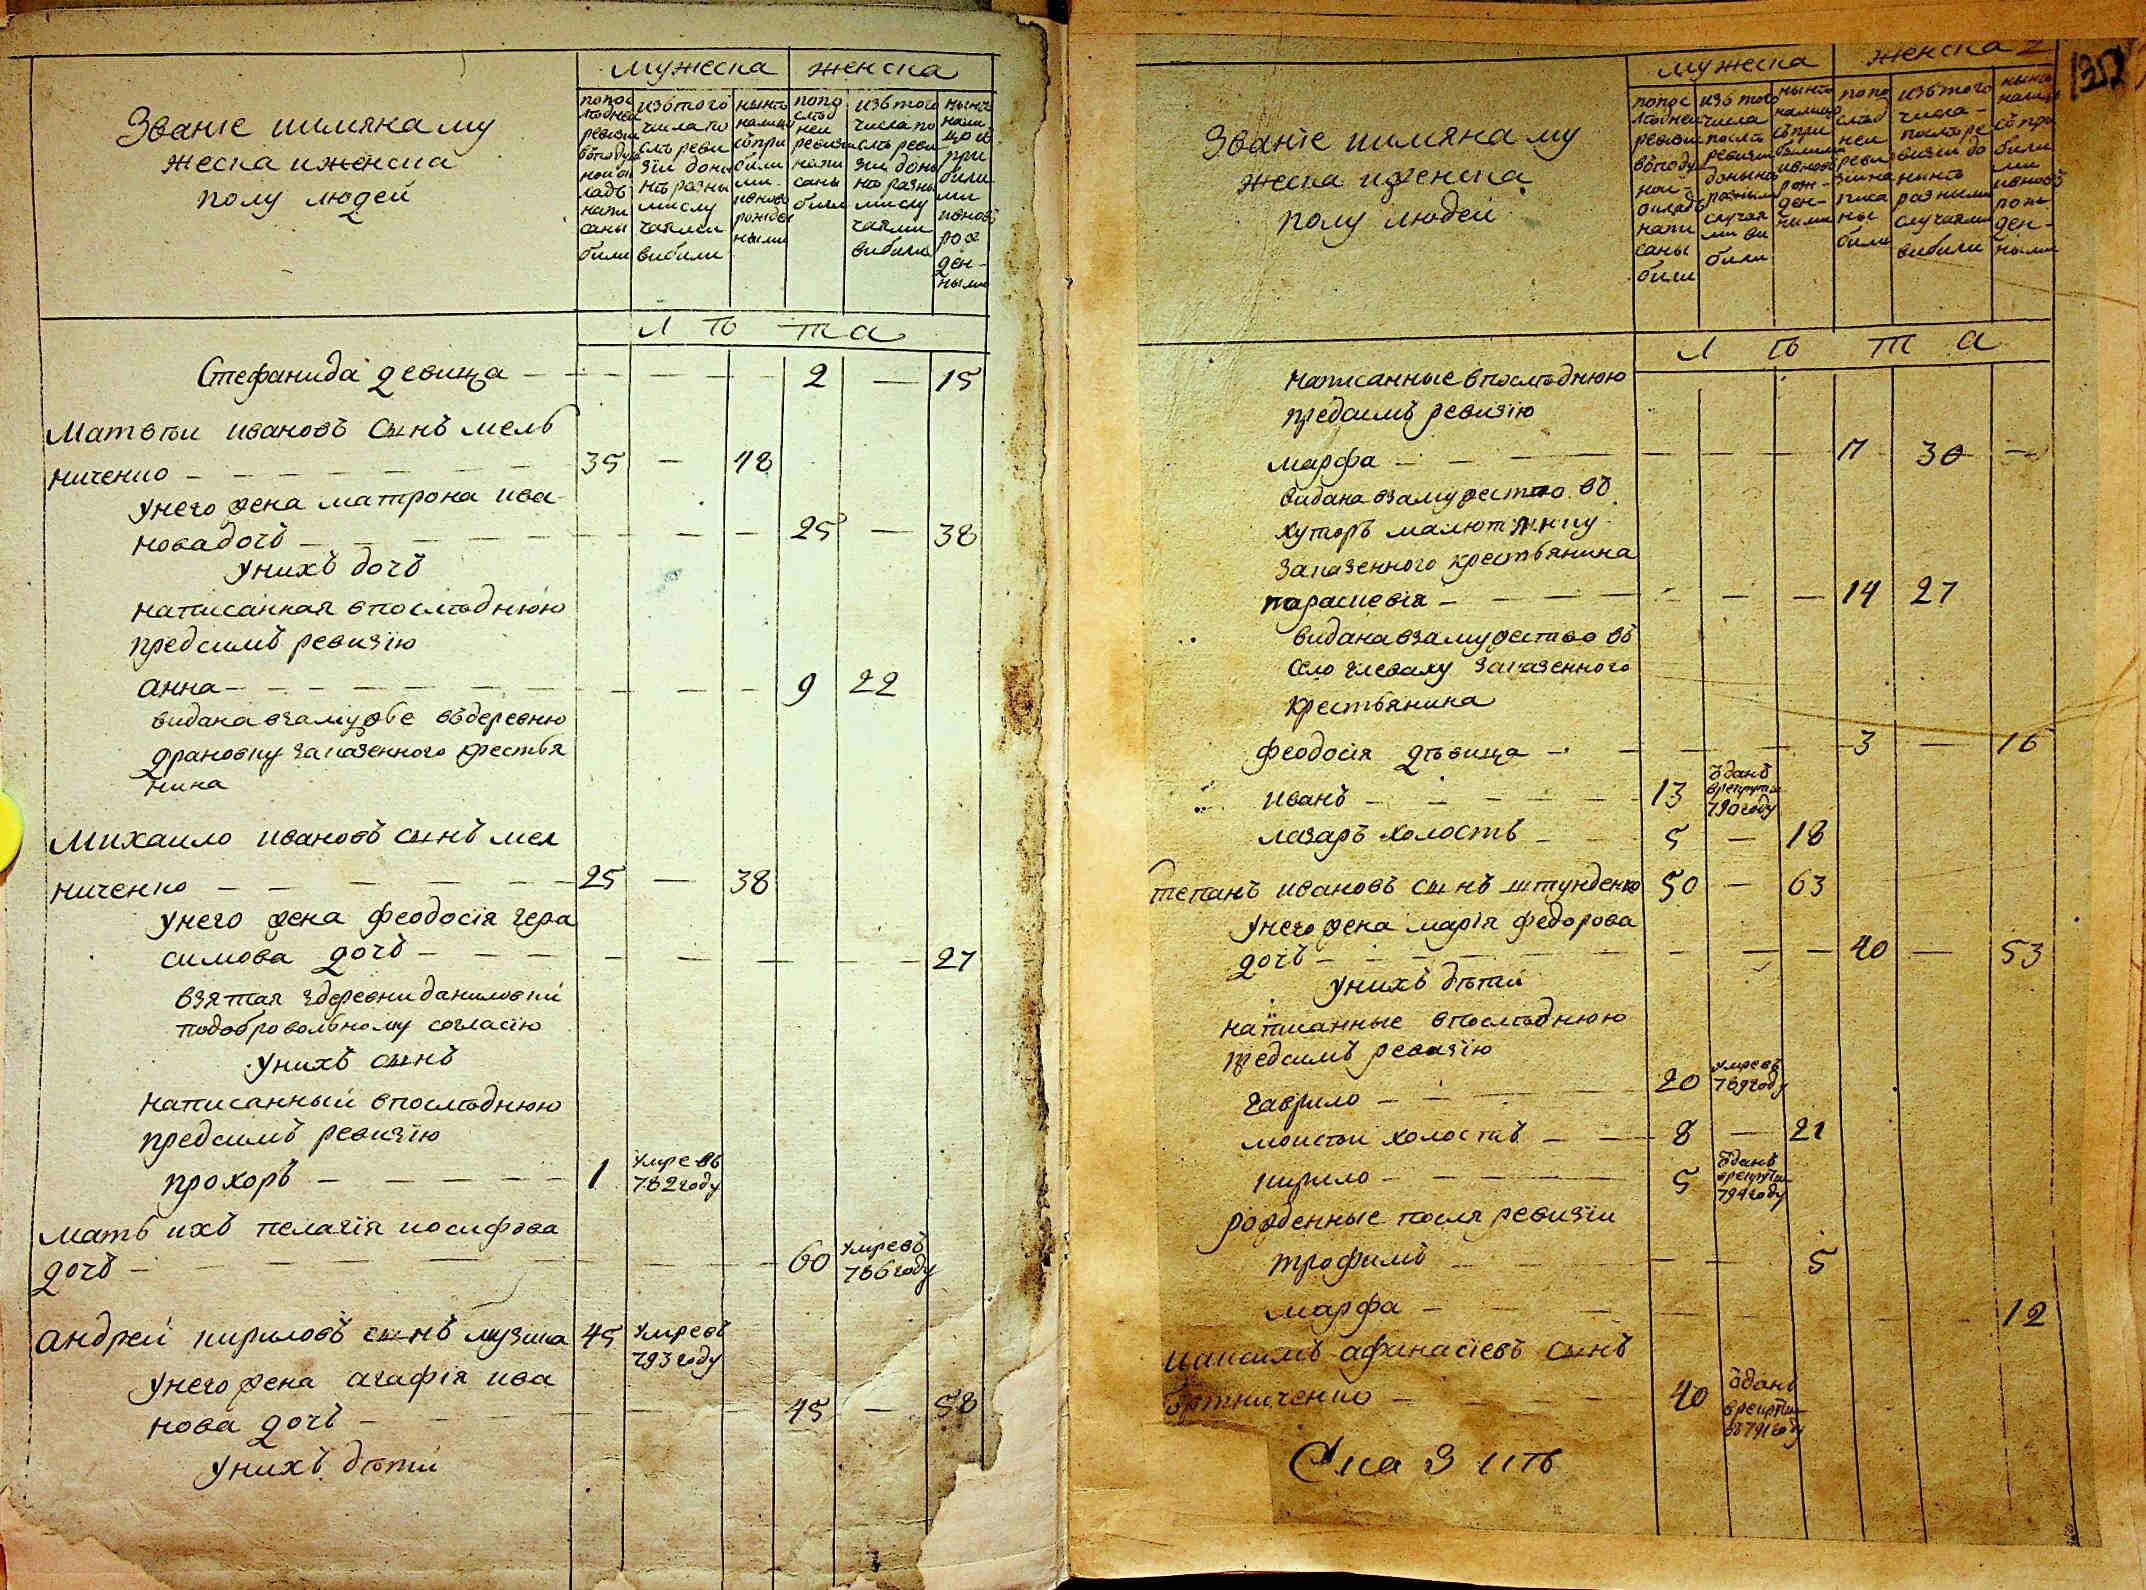 мужеска женска
Званіе имяна му
жеска иженска
полу людей
попос
лѣдней
ревизіи
вподуш
ной ок
ладъ
напи
саны
были
изътого
числа по
слѣ реви
зіи доны
нѣ разны
ми слу
чаями
выбыли
нынѣ
налицо
сприбы
лыми
ивновь
рожден
ными
попо
слѣд
ней
ревизіи
напи
саны
были
изътого
числа по
слѣ реви
зіи доны
нѣ разны
ми слу
чаями
выбыли
нынѣ
нали
цо съ
при
былы
ми
ивновь
рож
ден-
ными
л ѣ т а
Стефанида девица 2 — 15
Матвѣи ивановъ сынъ мель
ниченко 35 — 48
унего жена матрона ива
нова дочь 25 — 38
унихъ дочь
написанная впослѣднюю
предсимъ ревизію
анна 9 22
видана взамужье въдеревню
драновку заказенного крестья
нина
Михаило ивановъ сынъ мел
ниченко 25 — 38
унего жена феодосія гера
симова дочь — 27
взятая здеревни даниловки
подобровольному согласію
унихъ сынъ
написанный впослѣднюю
предсимъ ревизію
прохоръ 1 умре въ
782 году
мать ихъ пелагія иосифова
дочь 60 умре въ
786 году
андреи кириловъ сынъ музика 45 умре въ
793 году
унего жена агафія ива
нова дочь 45 — 58
унихъ дѣти
мужеска женска
Званіе имяна му
жеска иженска
полу людей
попос
лѣдней
ревизіи
вподуш
ной
окладъ
напи
саны
били
изътого
числа
послѣ
ревизіи
донынѣ
разными
случая
ми вы
били
нынѣ
налицо
съпри
былыми
ивновь
рож-
ден-
ными
попо
слѣд
ней
реви
зіи на
писа
ны
били
изътого
числа
послѣ ре
визіи до
нынѣ
разными
случаями
выбили
нынѣ
налицо
съпри
были
ми
ивновь
рож
ден-
ными
л ѣ т а
написанные впослѣднюю
предсимъ ревизію
марфа 17 30 —
видана взамужество въ
хуторъ
заказенного крестьянина
параскевія 14 27
видана взамужество въ
село заказенного
крестьянина
феодосія дѣвица 3 — 16
иванъ 13 ѿданъ
врекруты
790 году
лазаръ холостъ 5 — 18
степанъ ивановъ сынъ штунденко 50 — 63
унего жена марія федорова
дочь 40 — 53
унихъ дѣти
написанные впослѣднюю
предсимъ ревизію
гаврило 20 умре въ
789 году
моисѣи холостъ 8 — 21
кирило 5 ѿданъ
врекруты
794 году
рожденные посля ревизіи
трофимъ 5
марфа 12
максимъ афанасіевъ сынъ
бртниченко 40 ѿданъ
врекруты
въ791 году